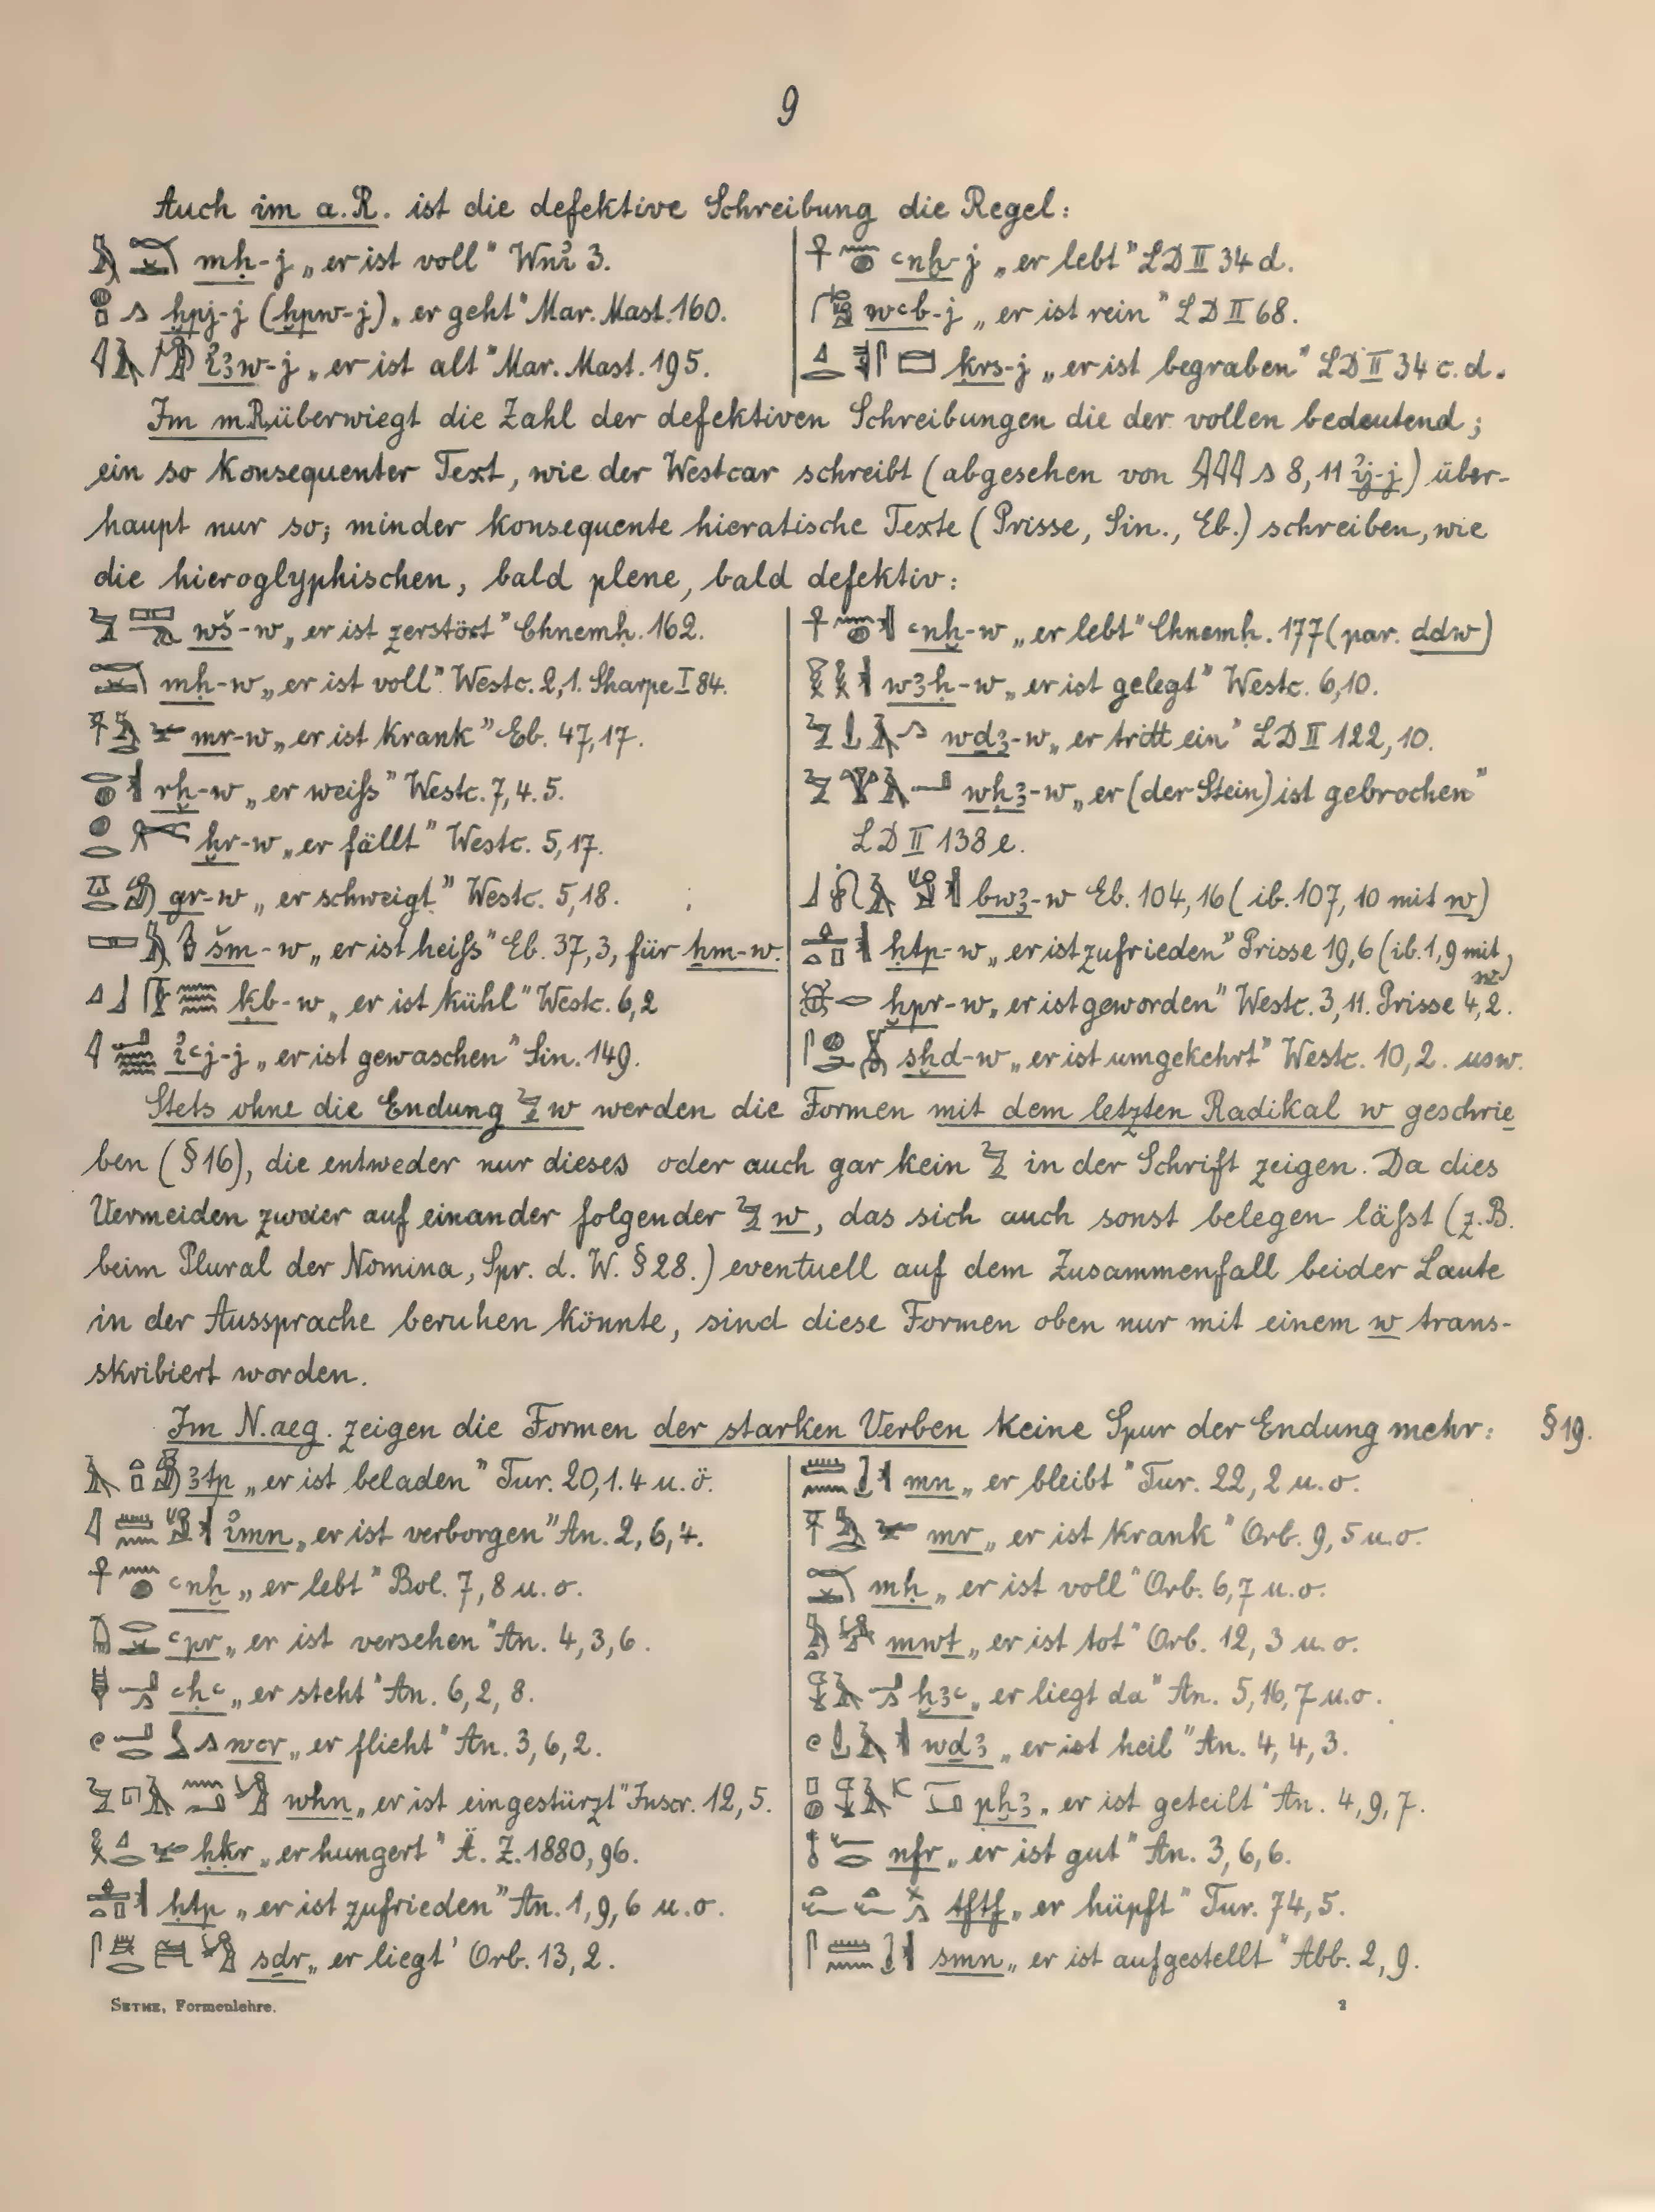 9
Auch im a.R. ist die defektive Schreibung die Regel:
mḥ-j „er ist voll" Wnỉ 3.
ḫpj-j (ḫpw-j) „er geht" Mar. Mast. 160.
ỉꜣw-j „er ist alt" Mar. Mast. 195.
ꜥnḫ-j „er lebt" LD II 34 d.
wꜥb-j „er ist rein" LD II 68.
ḳrs-j „er ist begraben" LD II 34 c. d.
Im mR überwiegt die Zahl der defektiven Schreibungen die der vollen bedeutend;
ein so konsequenter Text, wie der Westcar schreibt (abgesehen von 𓇋𓇋𓇋𓂻 8, 11 ỉj-j) über-
haupt nur so; minder konsequente hieratische Texte (Prisse, Sin., Eb.) schreiben, wie
die hieroglyphischen, bald plene, bald defektiv:
wš-w „er ist zerstört" Chnemḥ. 162.
mḥ-w „er ist voll" Westc. 2,1. Sharpe I 84.
mr-w „er ist krank" Eb. 47,17.
rḫ-w „er weiß" Westc. 7,4.5.
ḫr-w „er fällt" Westc. 5,17.
gr-w „er schweigt" Westc. 5,18.
šm-w „er ist heiß" Eb. 37,3, für ẖm-w.
ḳb-w „er ist kühl" Westc. 6,2
ỉꜥj-j „er ist gewaschen" Sin. 149.
ꜥnḫ-w „er lebt" Chnemḥ. 177 (par. ddw)
wꜣḥ-w „er ist gelegt" Westc. 6,10.
wḏꜣ-w „er tritt ein" LD II 122, 10.
wḫꜣ-w „er (der Stein) ist gebrochen"
LD II 138 e.
bwꜣ-w Eb. 104, 16 (ib. 107, 10 mit w)
ḥtp-w „er ist zufrieden" Prisse 19,6 (ib. 1,9 mit w)
ḫpr-w „er ist geworden" Westc. 3,11. Prisse 4,2.
sḫd-w „er ist umgekehrt" Westc. 10,2. usw.
Stets ohne die Endung 𓅱 w werden die Formen mit dem letzten Radikal w geschrie
ben (§ 16), die entweder nur dieses oder auch gar kein 𓅱 in der Schrift zeigen. Da dies
Vermeiden zweier auf einander folgender 𓅱 w, das sich auch sonst belegen läßt (z.B.
beim Plural der Nomina, Spr. d. W. § 28.) eventuell auf dem Zusammenfall beider Laute
in der Aussprache beruhen könnte, sind diese Formen oben nur mit einem w trans-
skribiert worden.
Im N.aeg. zeigen die Formen der starken Verben keine Spur der Endung mehr: § 19.
ꜣtp „er ist beladen" Tur. 20,1.4 u. ö.
ỉmn „er ist verborgen" An. 2,6,4.
ꜥnḫ „er lebt" Bol. 7,8 u. o.
ꜥpr „er ist versehen" An. 4,3,6.
ꜥḥꜥ „er steht" An. 6,2,8.
wꜥr „er flieht" An. 3,6,2.
whn „er ist eingestürzt" Inscr. 12,5.
ḥḳr „er hungert" Ä. Z. 1880, 96.
ḥtp „er ist zufrieden" An. 1,9,6 u. o.
sḏr „er liegt" Orb. 13,2.
mn „er bleibt" Tur. 22,2 u. o.
mr „er ist krank" Orb. 9,5 u. o.
mḥ „er ist voll" Orb. 6,7 u. o.
mwt „er ist tot" Orb. 12,3 u. o.
ḫꜣꜥ „er liegt da" An. 5,16,7 u. o.
wḏꜣ „er ist heil" An. 4,4,3.
pḫꜣ „er ist geteilt" An. 4,9,7.
nfr „er ist gut" An. 3,6,6.
tftf „er hüpft" Tur. 74,5.
smn „er ist aufgestellt" Abb. 2,9.
SETHE, Formenlehre. 2